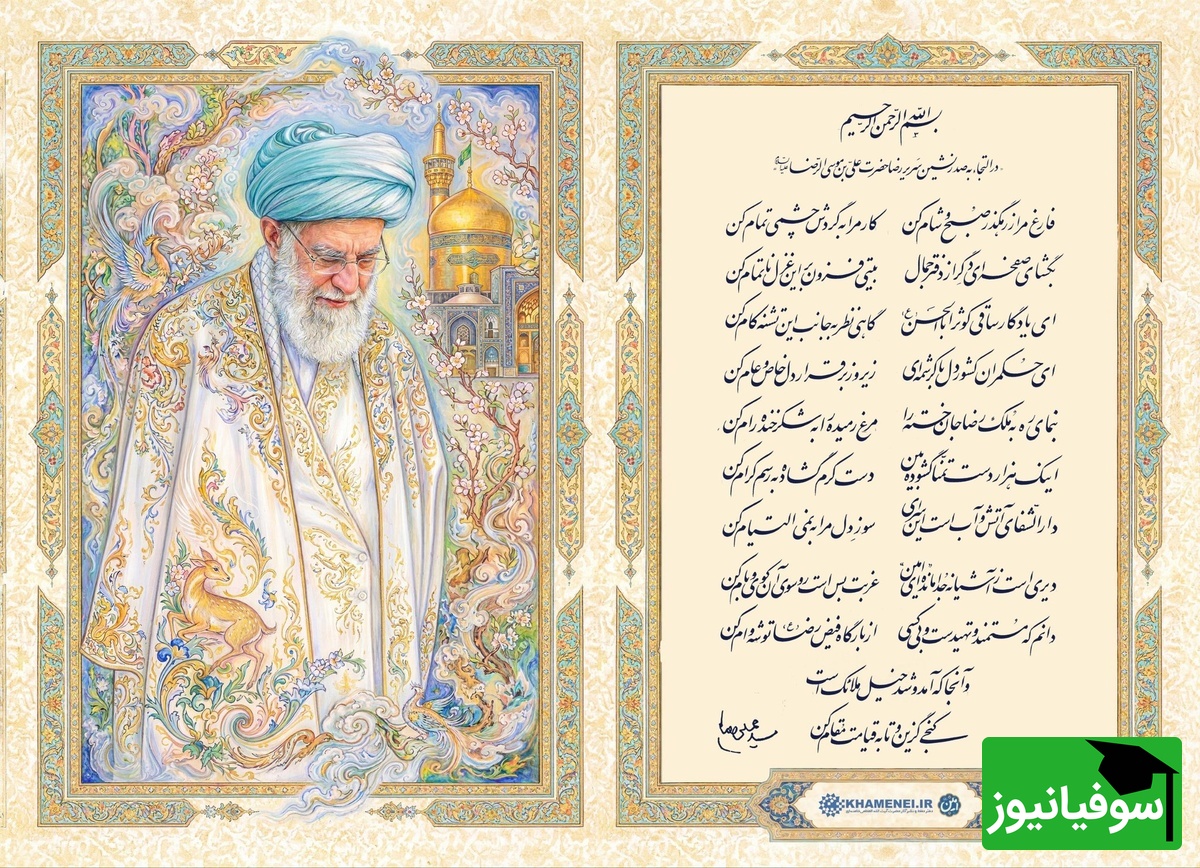 بسم الله الرحمن الرحیم
در التجاء به صدرنشین سریر رضا حضرت علی بن موسی الرضا علیه‌السلام
فارغ مرا ز رهگذر صبح و شام کن کار مرا به گردش چشمی تمام کن
بگشای صفحه‌ای دگر از دفتر جمال بیتی فزون بر این غزل ناتمام کن
ای یادگار ساقی کوثر اباالحسن (ع) گاهی نظر به جانب این تشنه کام کن
ای حکمران کشور دل با کرشمه‌ای زیر و زبر قرار دل خاص و عام کن
بنمای ره به ملک رضا جان خسته را مرغ رمیده را به شکرخنده رام کن
اینک هزار دست تمنا گشوده بین دست کرم گشاده به رسم کرام کن
دارالشفای آتش و آب است این سرای سوز دل مرا به نمی التیام کن
دیری است ز آشیانه جدا مانده‌ای امین غربت بس است رو سوی آن کوی و بام کن
دانم که مستمند و تهیدست و بی‌کسی از بارگاه فیض رضا (ع) توشه وام کن
وآنجا که آمد و شد خیل ملائک است
کنجی گزین و تا به قیامت مقام کن
KHAMENEI.IR
سوفیانیوز